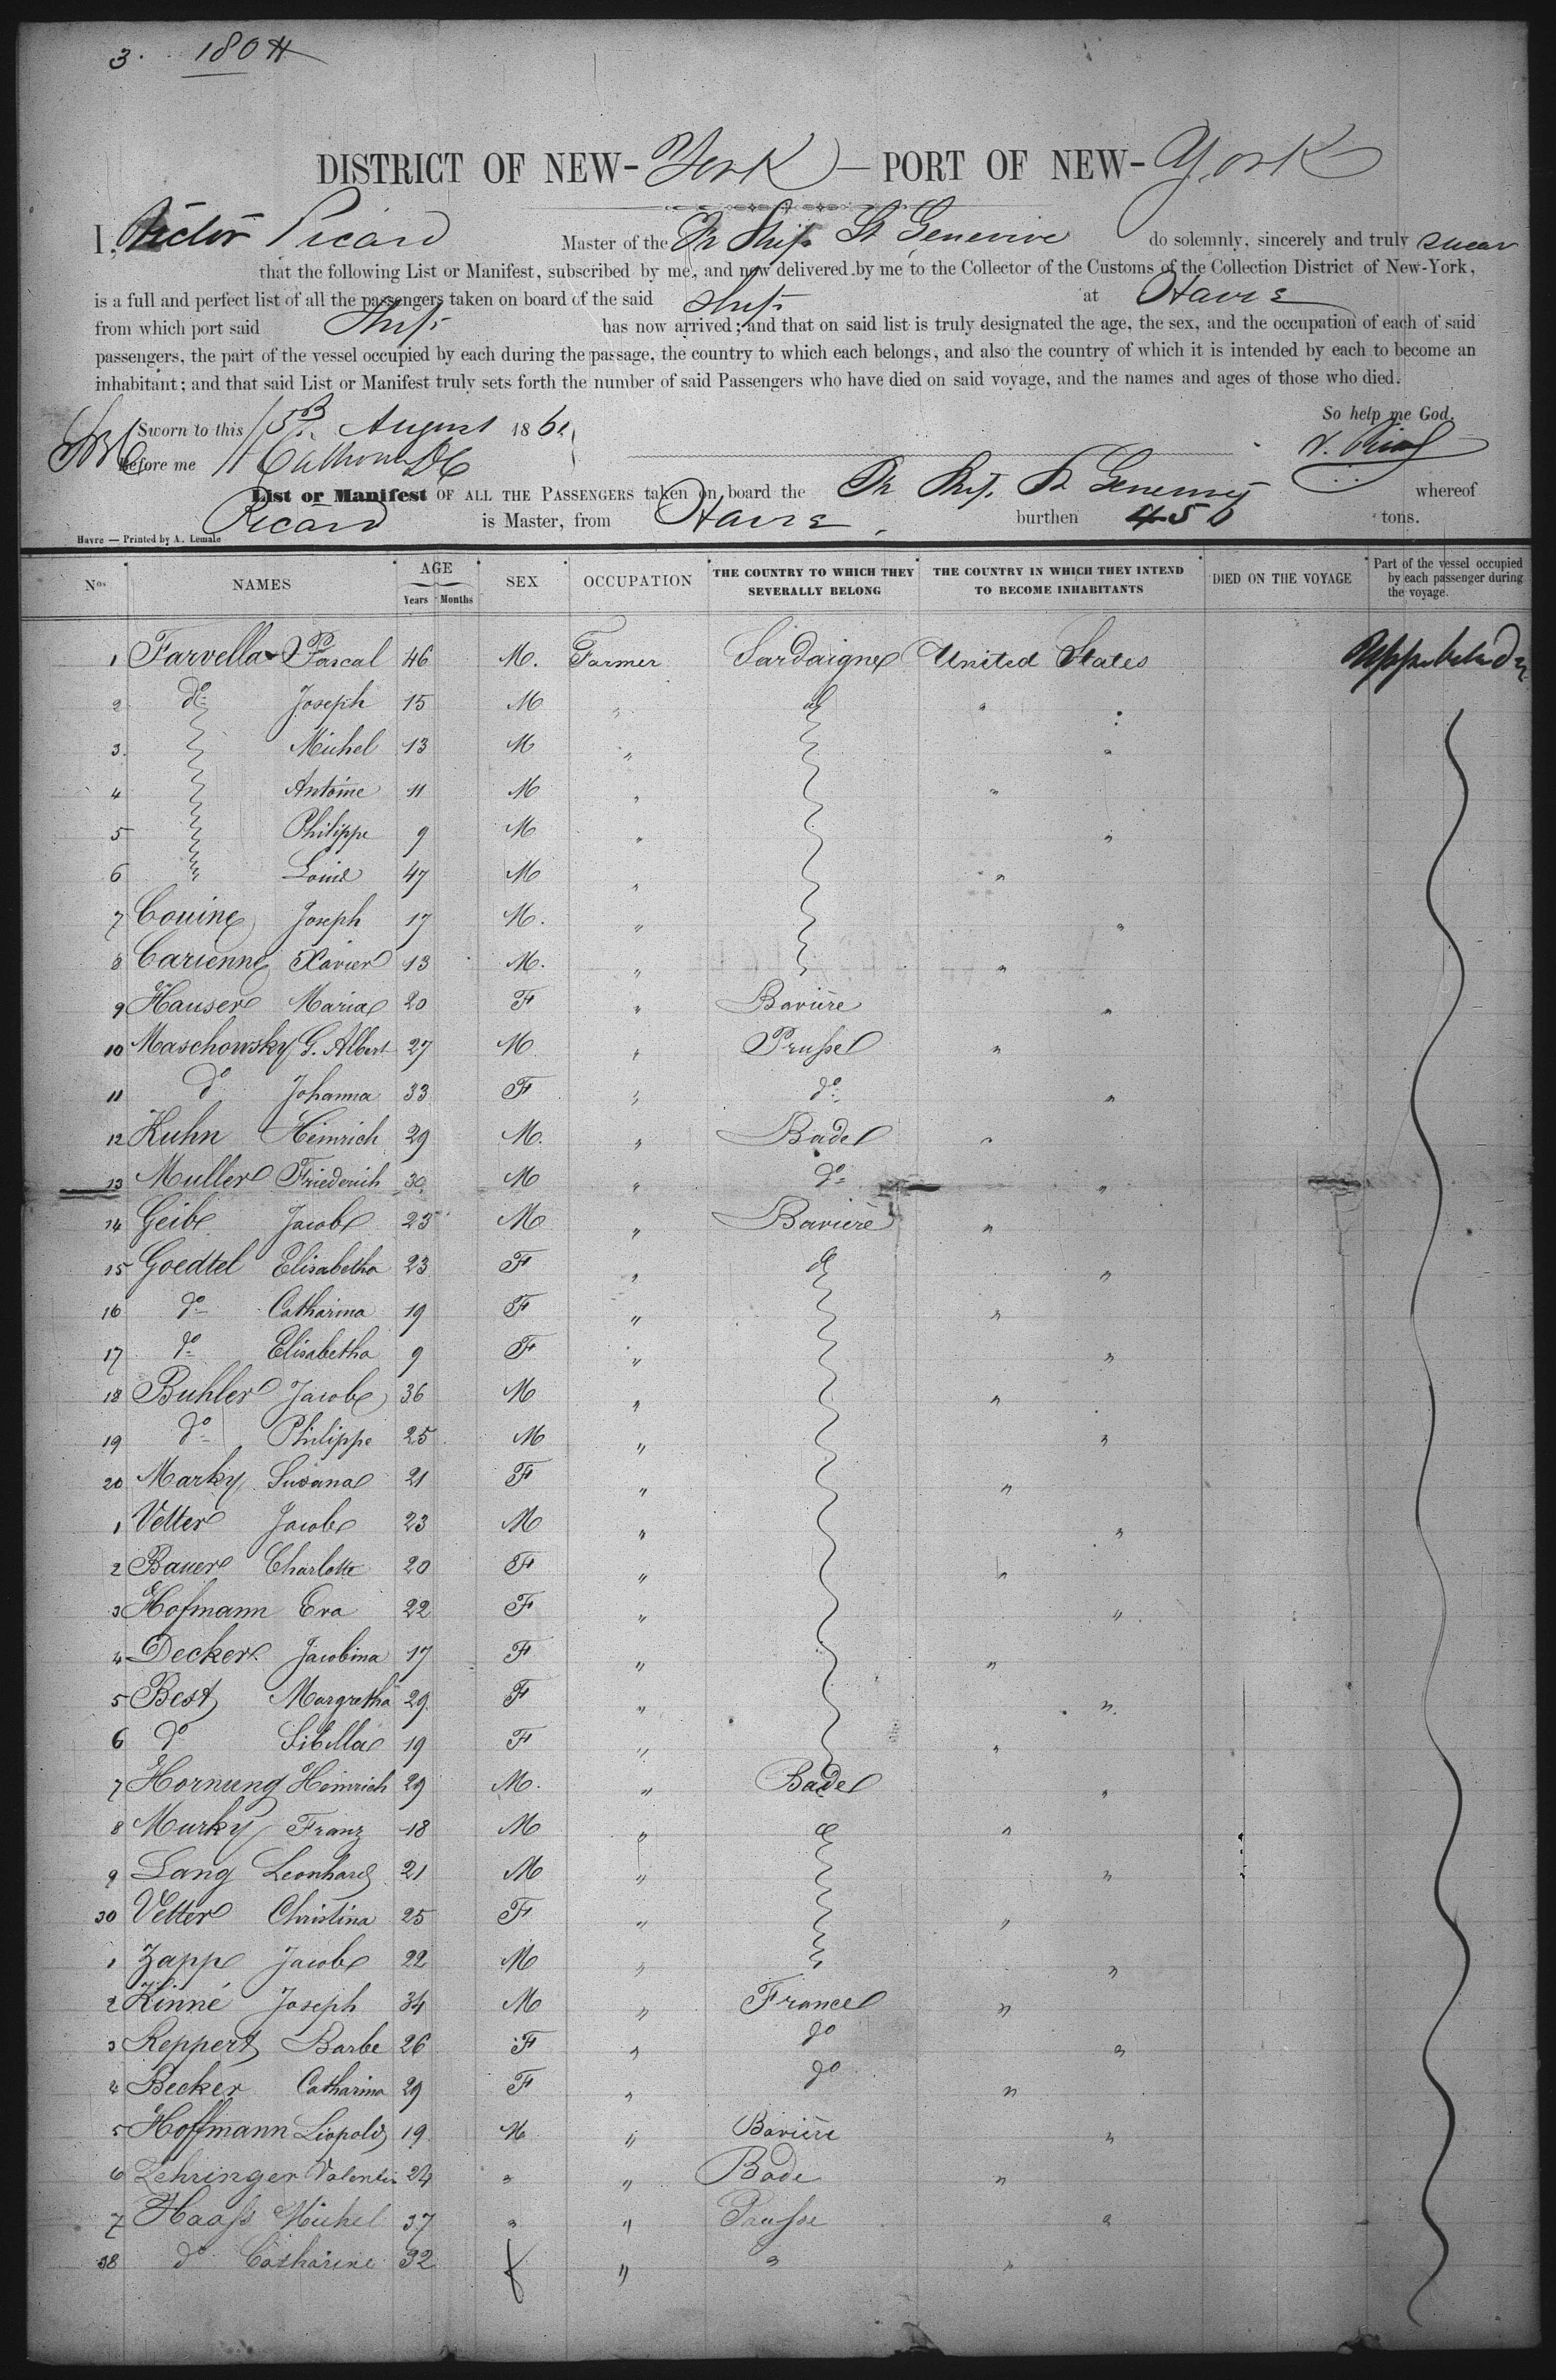 3. 180 #
DISTRICT OF NEW-York — PORT OF NEW-York
I, Victor Picard Master of the Fr Ship St Genevive do solemnly, sincerely and truly swear
that the following List or Manifest, subscribed by me, and now delivered by me to the Collector of the Customs of the Collection District of New-York,
is a full and perfect list of all the passengers taken on board of the said Ship at Havre
from which port said Ship has now arrived; and that on said list is truly designated the age, the sex, and the occupation of each of said
passengers, the part of the vessel occupied by each during the passage, the country to which each belongs, and also the country of which it is intended by each to become an
inhabitant; and that said List or Manifest truly sets forth the number of said Passengers who have died on said voyage, and the names and ages of those who died.
So help me God.
Sworn to this 15 August 186
Before me Calhoun DC
List or Manifest OF ALL THE PASSENGERS taken on board the Fr Ship St whereof
Picard is Master, from Havre burthen 456 tons.
Havre — Printed by A. Lemale
Nos NAMES AGE Years Months SEX OCCUPATION THE COUNTRY TO WHICH THEY SEVERALLY BELONG THE COUNTRY IN WHICH THEY INTEND TO BECOME INHABITANTS DIED ON THE VOYAGE Part of the vessel occupied by each passenger during the voyage.
1 Farvella Pascal 46 M. Farmer Sardaigne United States
2 do Joseph 15 M " do " "
3 Michel 13 M " "
4 Antoine 11 M " "
5 Philippe 9 M " "
6 " Louis 47 M " "
7 Couine Joseph 17 M. " "
8 Carienne Xavier 13 M. " "
9 Hauser Maria 20 F " Bavière "
10 Maschowsky G. Albert 27 M " Prusse "
11 do Johanna 33 F " do "
12 Kuhn Heinrich 29 M. " Bade "
13 Muller Friederich 30 M " do "
14 Geibe Jacob 23 M " Baviere "
15 Goedtel Elisabetha 23 F " do "
16 do Catharina 19 F " "
17 do Elisabetha 9 F " "
18 Buhler Jacob 36 M " "
19 do Philippe 25 M " "
20 Marky Susana 21 F " "
1 Vetter Jacob 23 M " "
2 Bauer Charlotte 20 F " "
3 Hofmann Eva 22 F " "
4 Decker Jacobina 17 F " "
5 Best Margretha 29 F " "
6 do Sibilla 19 F " "
7 Hornung Heinrich 29 M. " Bade "
8 Murky Franz 18 M " do "
9 Lang Leonhard 21 M " "
30 Vetter Christina 25 F " "
1 Zapp Jacob 22 M " "
2 Kinné Joseph 34 M " France "
3 Reppert Barbe 26 F " do "
4 Becker Catharina 29 F " do "
5 Hoffmann Léopold 19 M " Bavière "
6 Zehringer Valentin 24 " " Bade "
7 Haass Michel 37 " " Prusse "
38 do Catharine 32 f " " "